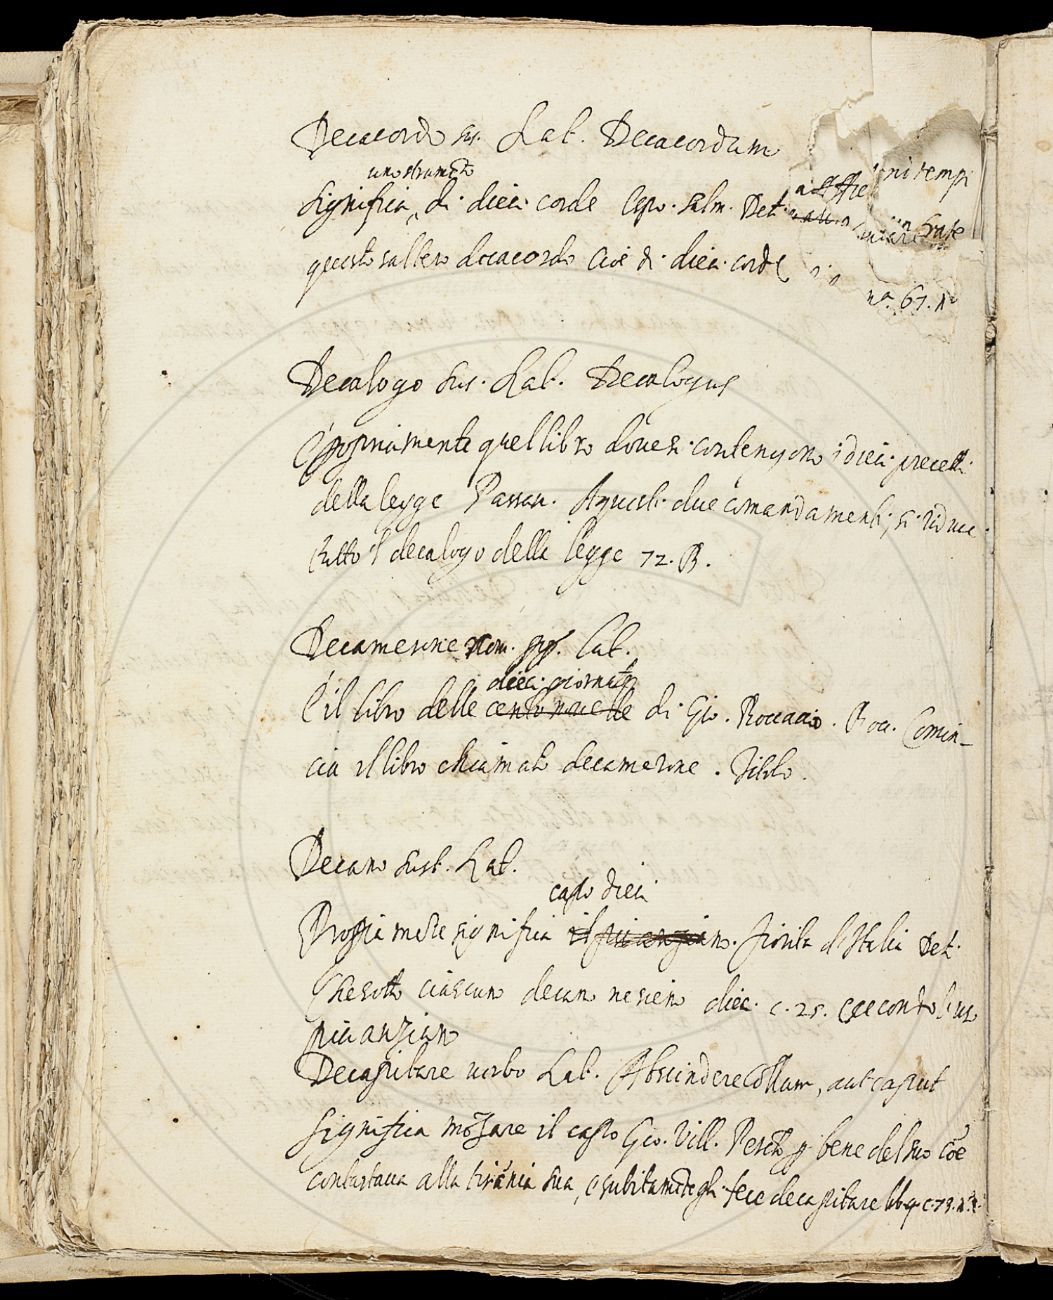 Decacordo sus. Lat. Decacordum
uno strumto
Significa di dieci corde Espo. Salm. Det
questo saltero decacordo cioè di dieci corde
na. 67. 
Decalogo sus. Lat. Decalogus
È propriamente quel libro dove si contengono i dieci precetti
della legge Passav. A questi due comandamenti si riduce
tutto 'l decalogo della legge 72. B.
Decamerone nom. pp. Lat.
dieci giornate
È il libro delle cento novelle di Gio. Boccacio. Bocc. Comin-
cia il libro chiamato decamerone. Titolo.
Decano sust. Lat.
capo dieci
Propriamete significa il piu anziano. Fiorita d'Italia Det.
Che sotto ciascuno decano ne sieno dieci c. 25. secondo l'us
piu anziano
Decapitare verbo Lat. Abscindere Collum, aut caput
Significa mozare il capo Gio. Vill. Perchè p bene del suo Coe
contastava alla tirania sua, e subitamte gli fece decapitare c. 79.